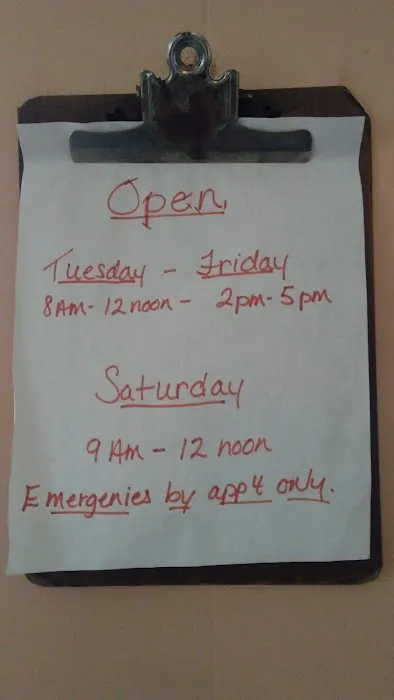 Open
Tuesday - Friday
8AM- 12 noon - 2pm- 5pm
Saturday
9 AM - 12 noon
Emergenies by app't only.